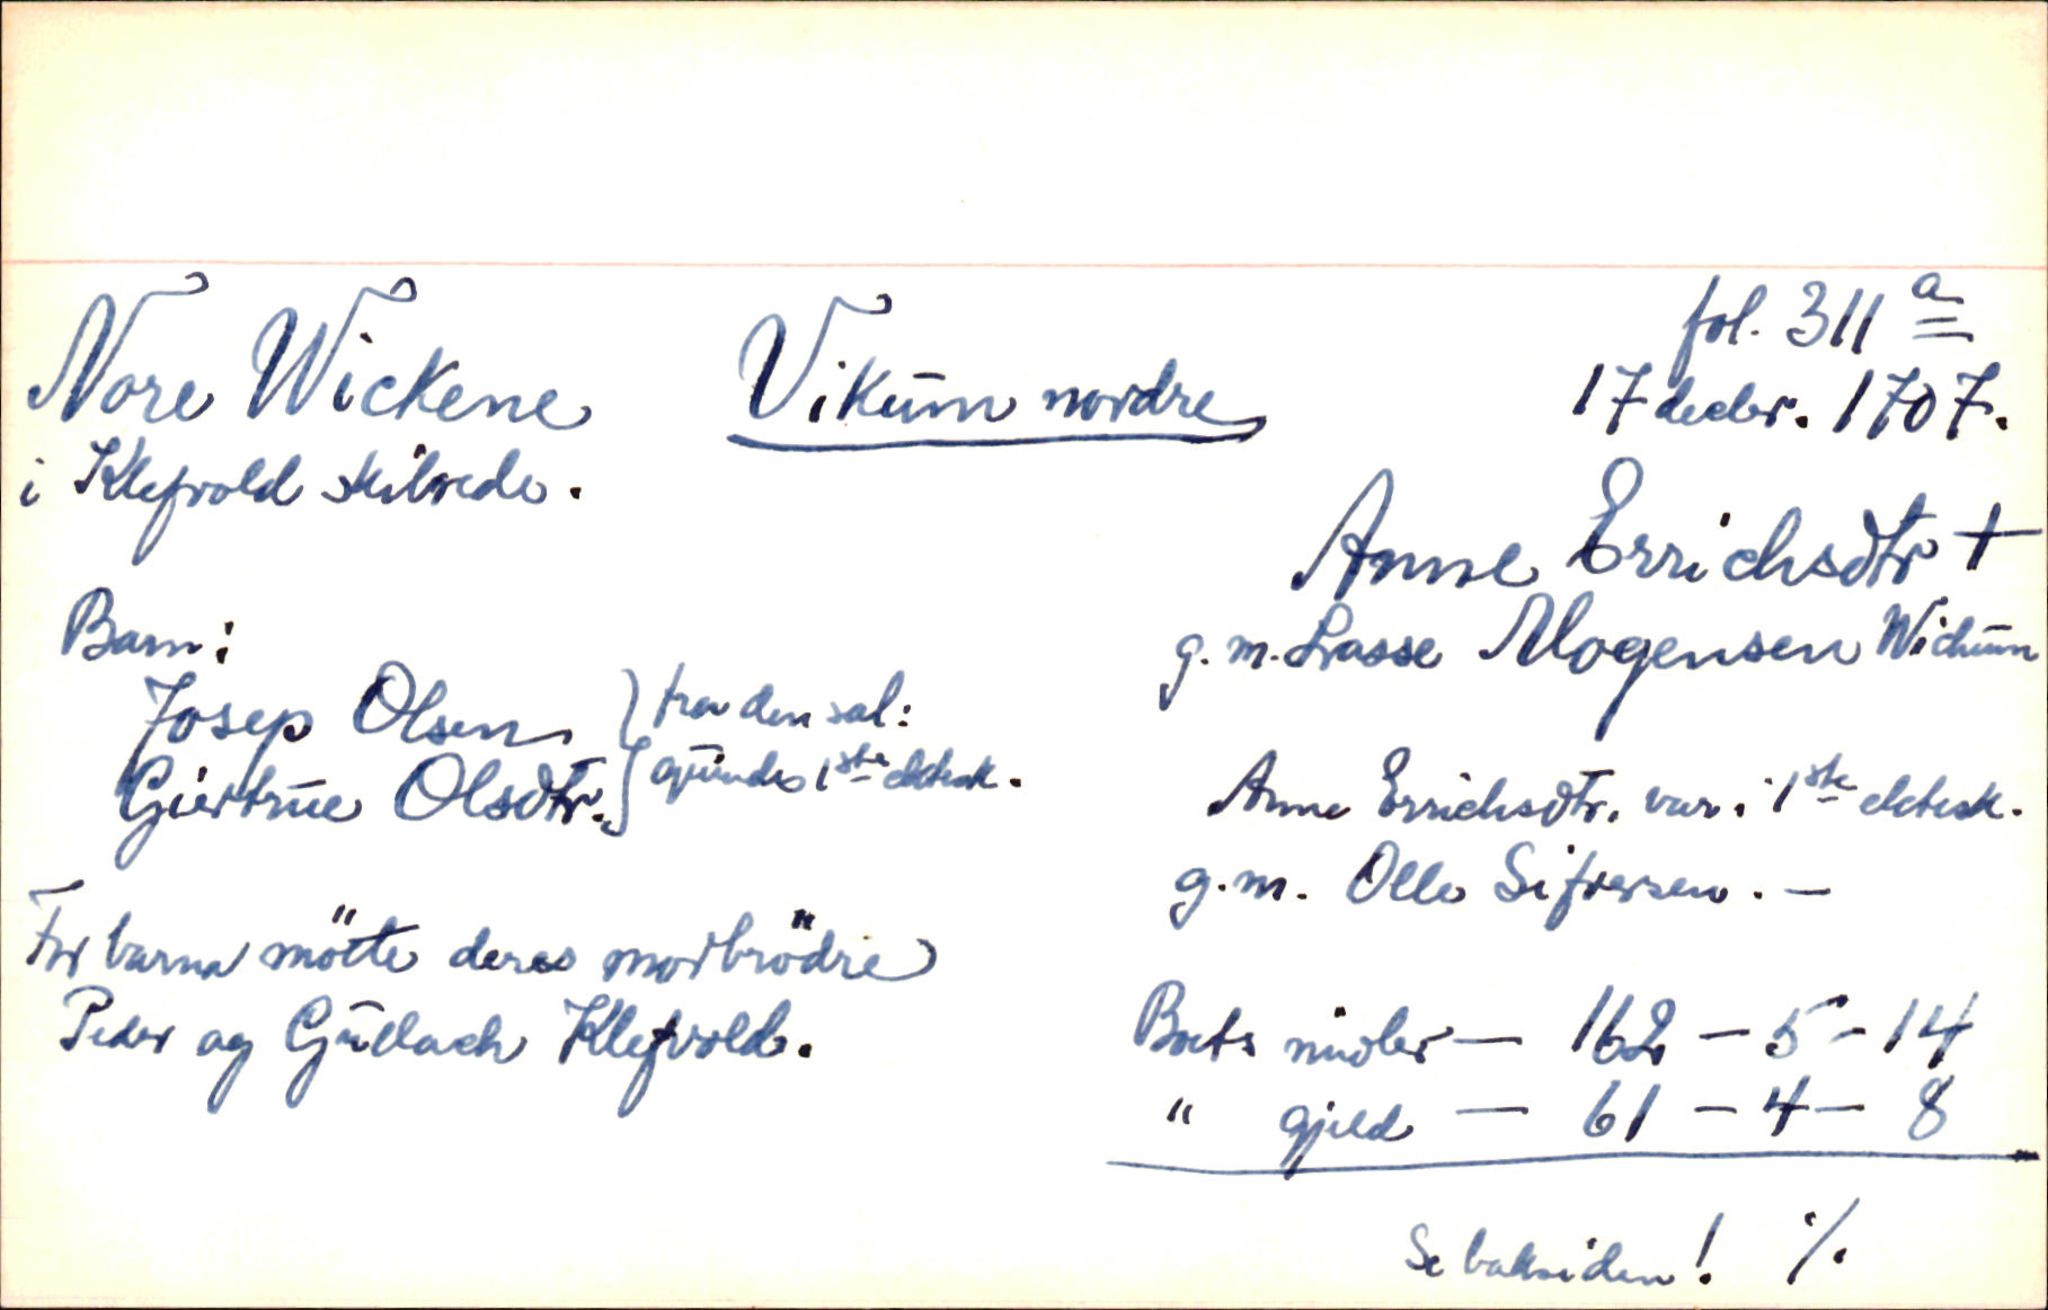 Nore Wickene
i Klefvold skibrede.
Vikum nordre
fol. 311 a
17 decbr. 1707.
Anne Errichsdtr +
g. m. Lasse Mogensen Wichum
Barn:
Josep Olsen
Giertrue Olsdtr.
fra den sal:
quindes 1ste ektesk.
Anne Errichsdtr. var i 1ste ektesk.
g. m. Olle Sifversen. —
For barna mötte deres morbrödre
Peder og Gullach Klefvold.
Boets midler — 162 — 5 - 14
" gjeld — 61 — 4 — 8
Se baksiden! ·/.